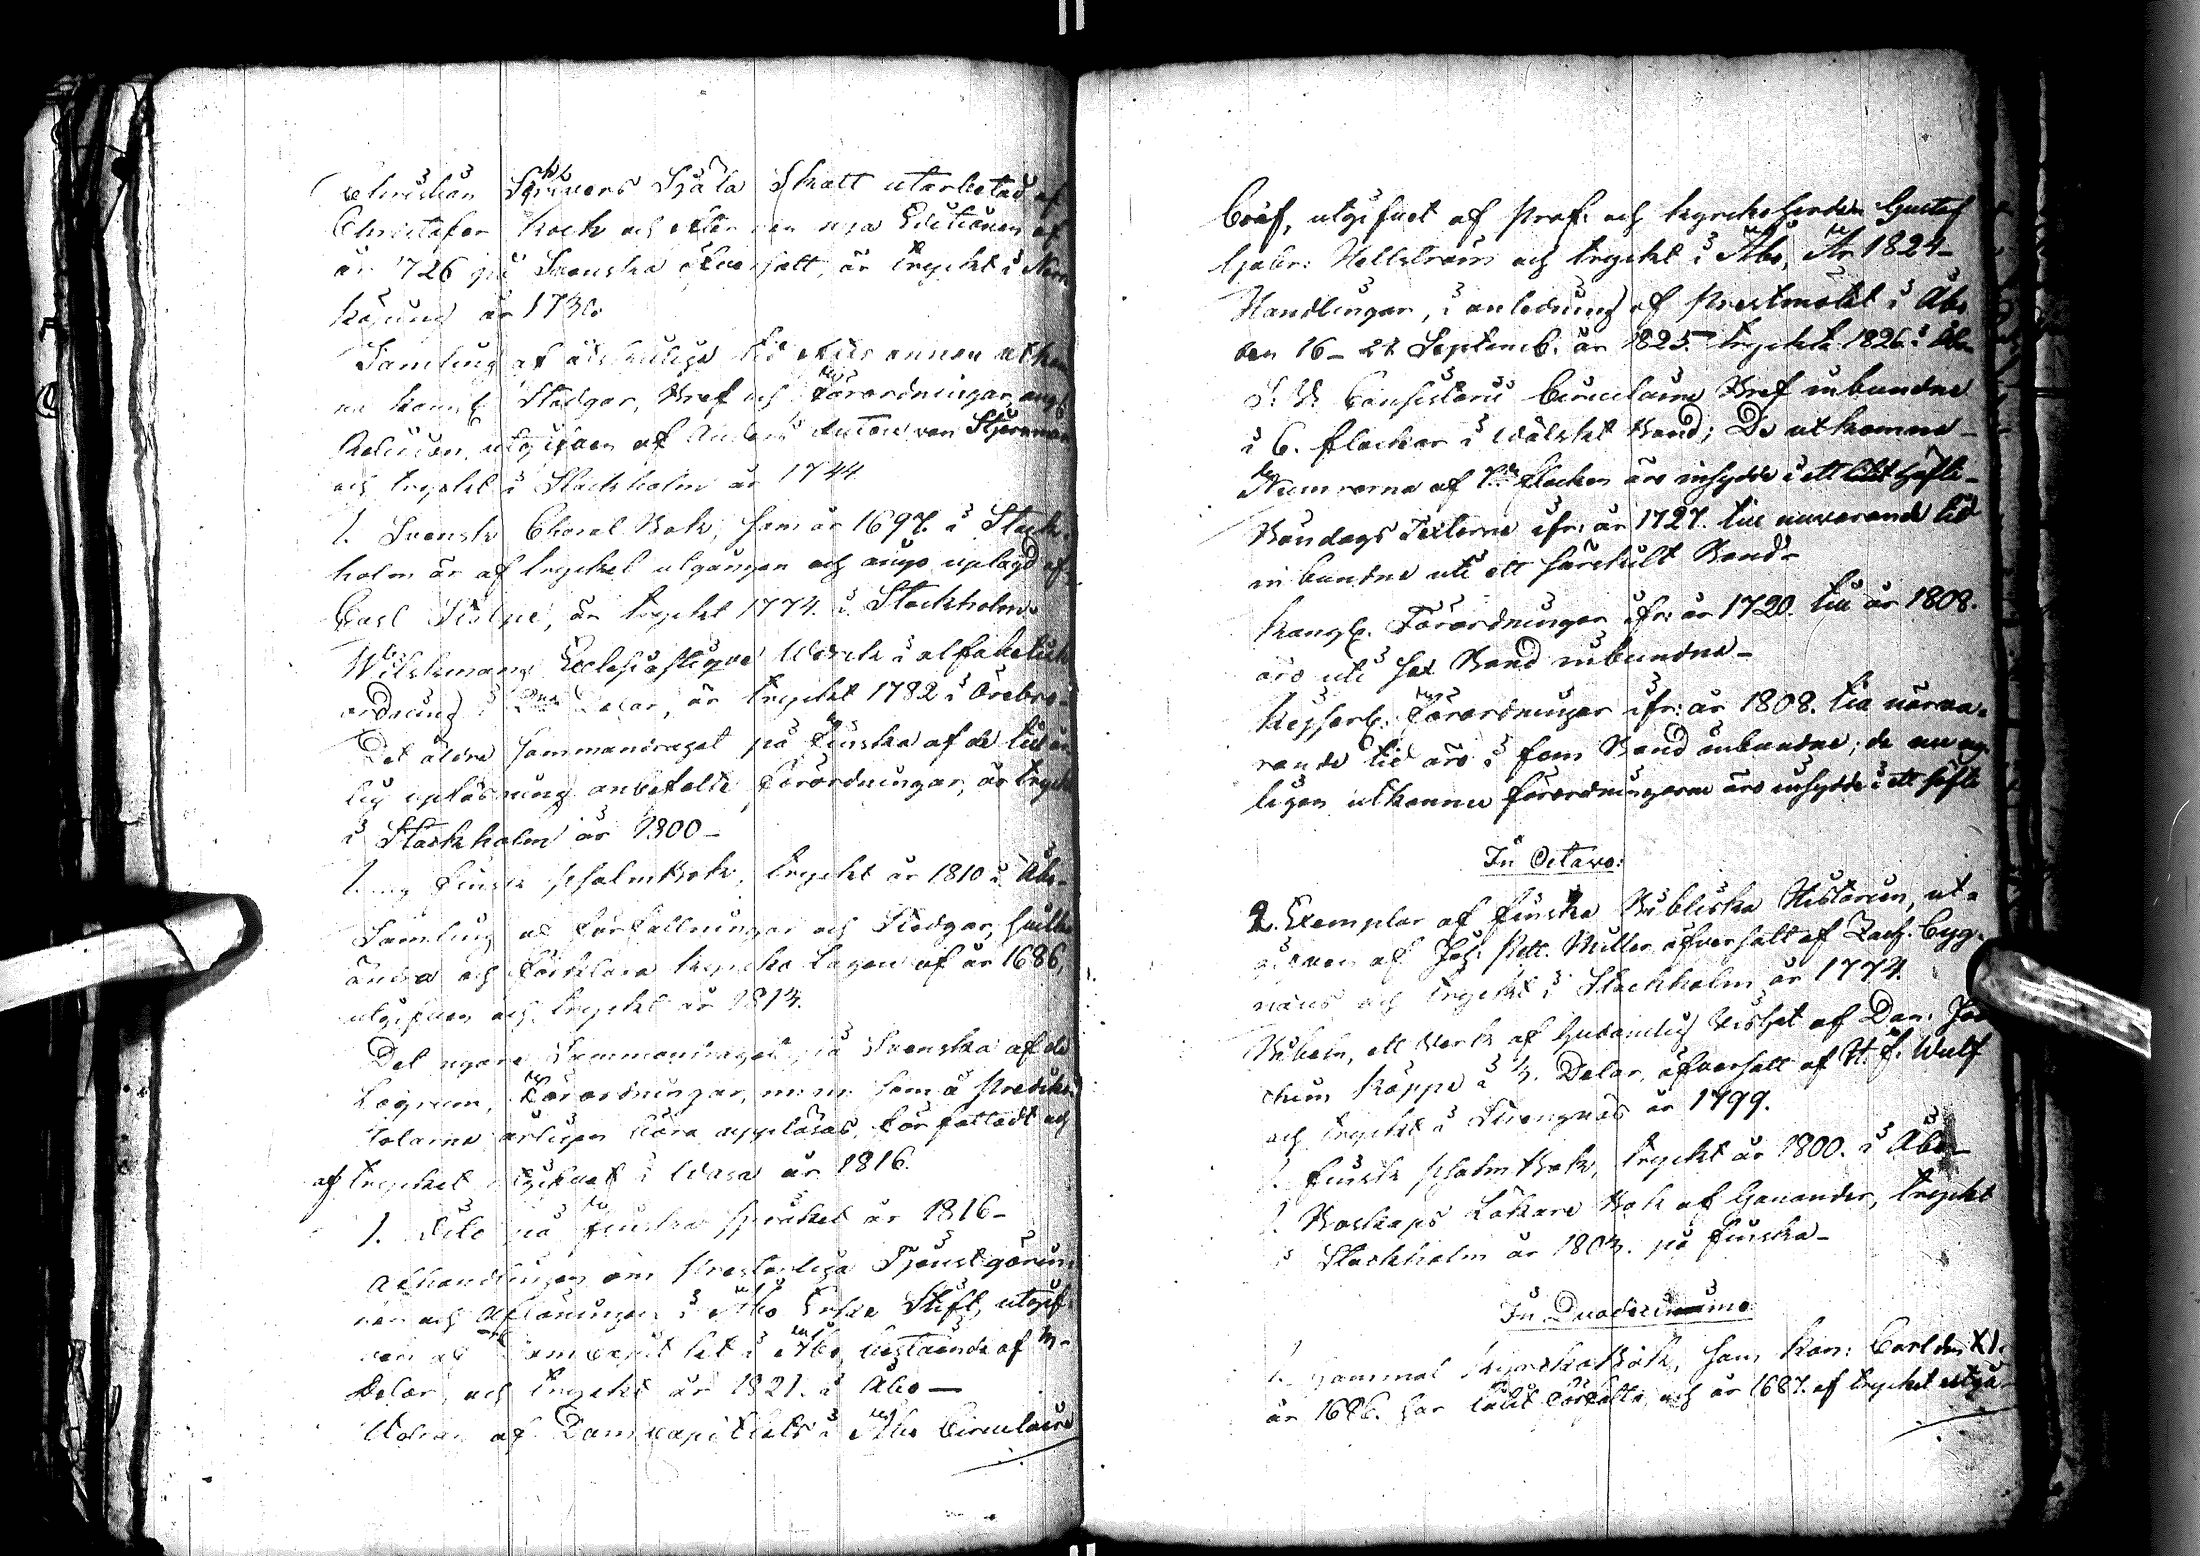 Christian Scrivers Själa Skatt utarbetad af
Christofer Kock och efter den nya Editionen af
år 1726 på Svenska öfversatt, är tryckt i Norr
köping år 1730
Samling af åtskillige tid efter annan utkom
ne Kongl. Stadgar, Bref och Förordningar ang.
Religion, utgifven af Anders Anton von Stjernman
och tryckt i Stockholm år 1744
1. Svensk Choral Bok, som år 1697. i Stock
holm är af trycket utgången och ånyo uplagd af
Carl Stolpe, är tryckt 1774. i Stockholm.
Wilskmans Ecclesiastique Werck i alfabetisk
ordning i Delar, är tryckt 1782 i Örebro-
Det äldre sammandraget på finska af de till år
lig upläsning anbefalte Förordningar, är tryckt
i Stockholm år 1800-
1. ny finsk Psalmbok, tryckt år 1810 i Åbo-
Samling af Författningar och Stadgar, hvilka
ändra och förklara kyrcko Lagen af år 1686,
utgifven och tryckt år 1813.
Det nyare Sammandraget på Svenska af de
Lagrum, Förordningar, m.m. som å Predik
stolarne årligen böra uppläsas, författadt och
af trycket utgifvet i Wasa år 1816.
1. Dito på finska språket år 1816-
Afhandlingen om Presterliga Tjenstgörin
och Aflöningen i Åbo Erke Stift, utgif
ven af Domcapitlet i Åbo, bestående af 3-
Delar, och tryckt år 1821. i Åbo-
af Domcapitlets i Åbo Circulaire
bref, utgifvet af Prof. och kyrckoherden Gustaf
Gabr: Hellström och tryckt i Åbo, År 1824-
Handlingar, i anledning af Prestmötet i Åbo
den 16- 21 Septemb. år 1825. tryckta 1826 i Åbo
S. V. Consistorii Circulaire Bref inbundne
i 6. flockar i Wälskt Band; De utkomne-
Numrorna af 7de flocken äro insydde i ett litet häfte-
Böndags Texterne ifr: år 1727. till nuvarande tid
inbundne uti ett särskilt Band-
Kongl. Förordningar ifr: år 1720. till år 1808.
äro uti sex Band inbundne-
Kejserl. Förordningar ifr: år 1808. till närva-
rande tid äro i fem Band inbundne; de nu ny
ligen utkomne förordningarne äro insydde i ett häfte
In Octavo:
2. Exemplar af finska Bibliska Historien, ut-
gifven af Joh. Pett. Miller öfversatt af Zach. Cyg-
næus och tryckt i Stockholm år 1774.
Bibeln, ett Werk af Gudomlig Wishet af Dan: Joa
chim Köppe i 3. Delar, öfversatt af H. f. Wulf
och tryckt i Strengnäs år 1799.
1. finsk Psalm Bok, tryckt år 1800. i Åbo-
1. Boskaps Läkare Bok af Ganander, tryckt
i Stockholm år 1803. på finska-
In Duodecimo:
1. gammal kyrckoBok, som Kon: Carl den XI.
år 1686. har låtit författa, och år 1687. af trycket utgå-